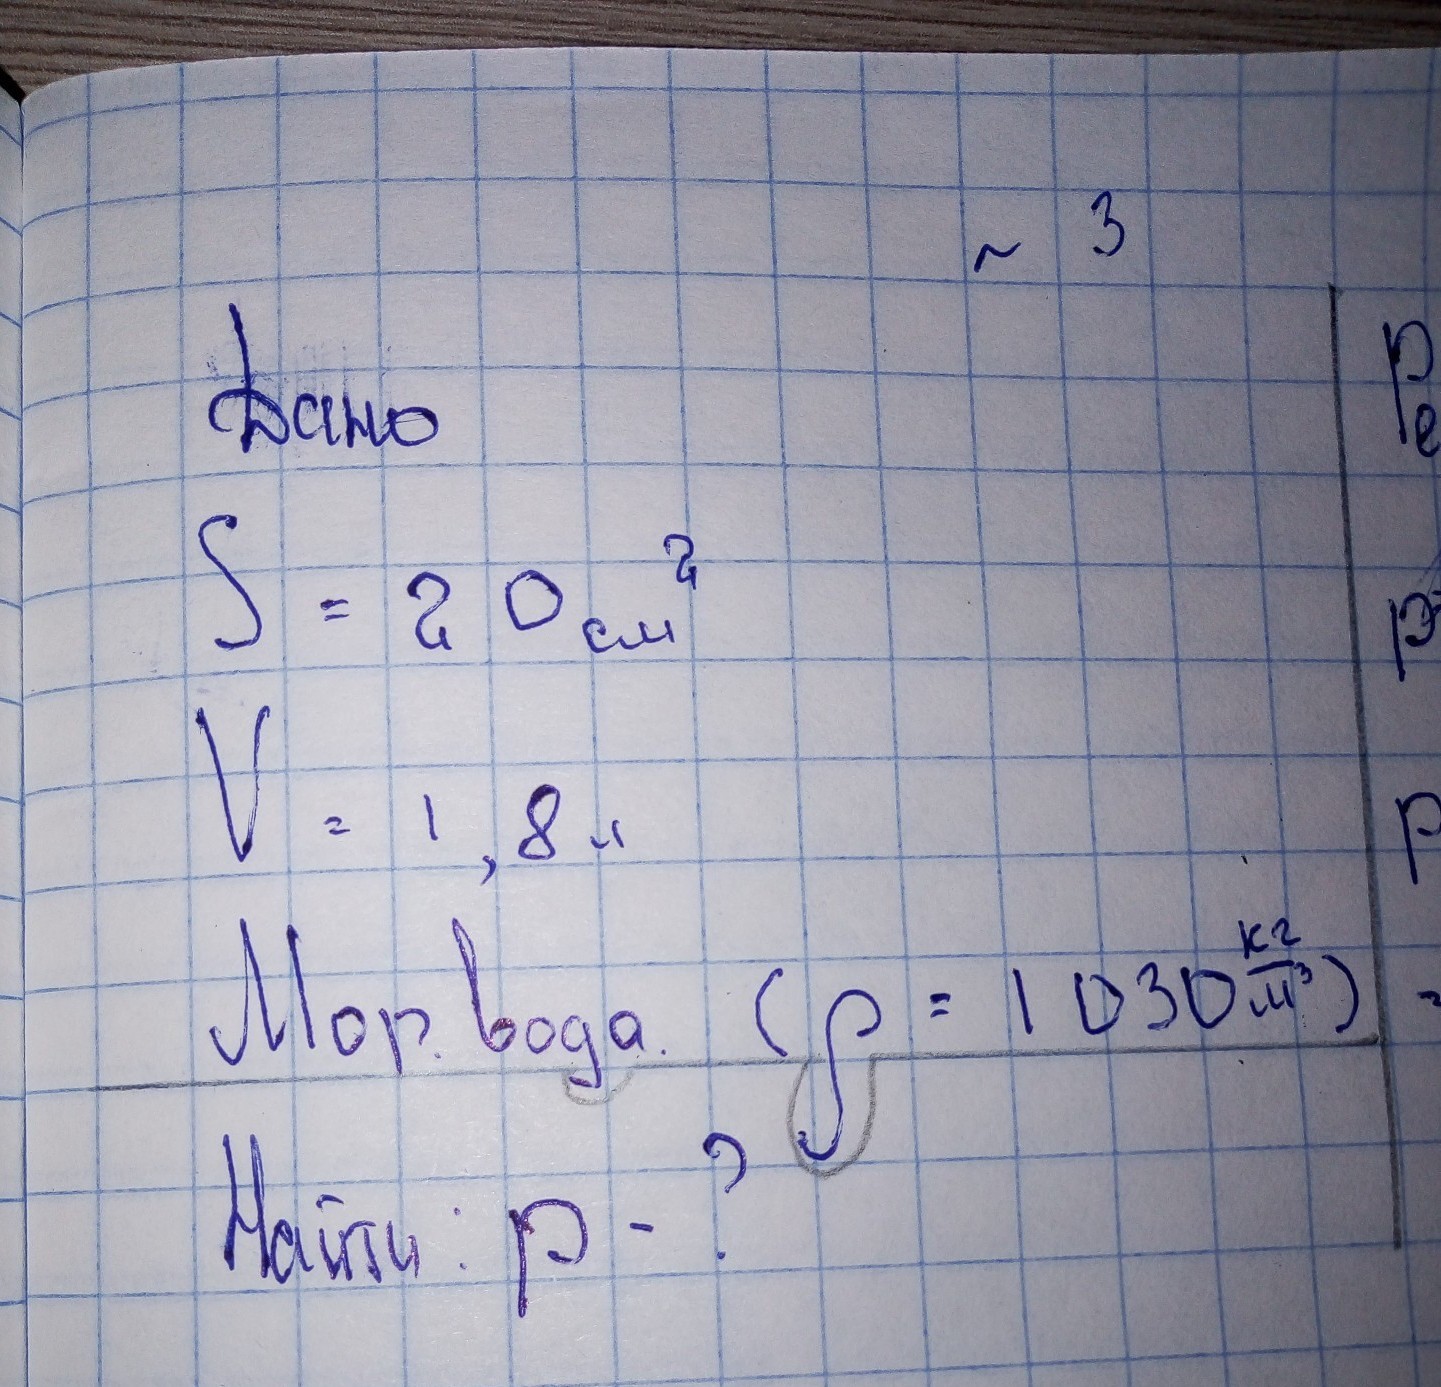 ~ 3
Дано
S = 20 см²
V = 1,8 л
Мор. вода. (ρ = 1030 кг/м³) =
Найти: p - ?
Ре
p
p